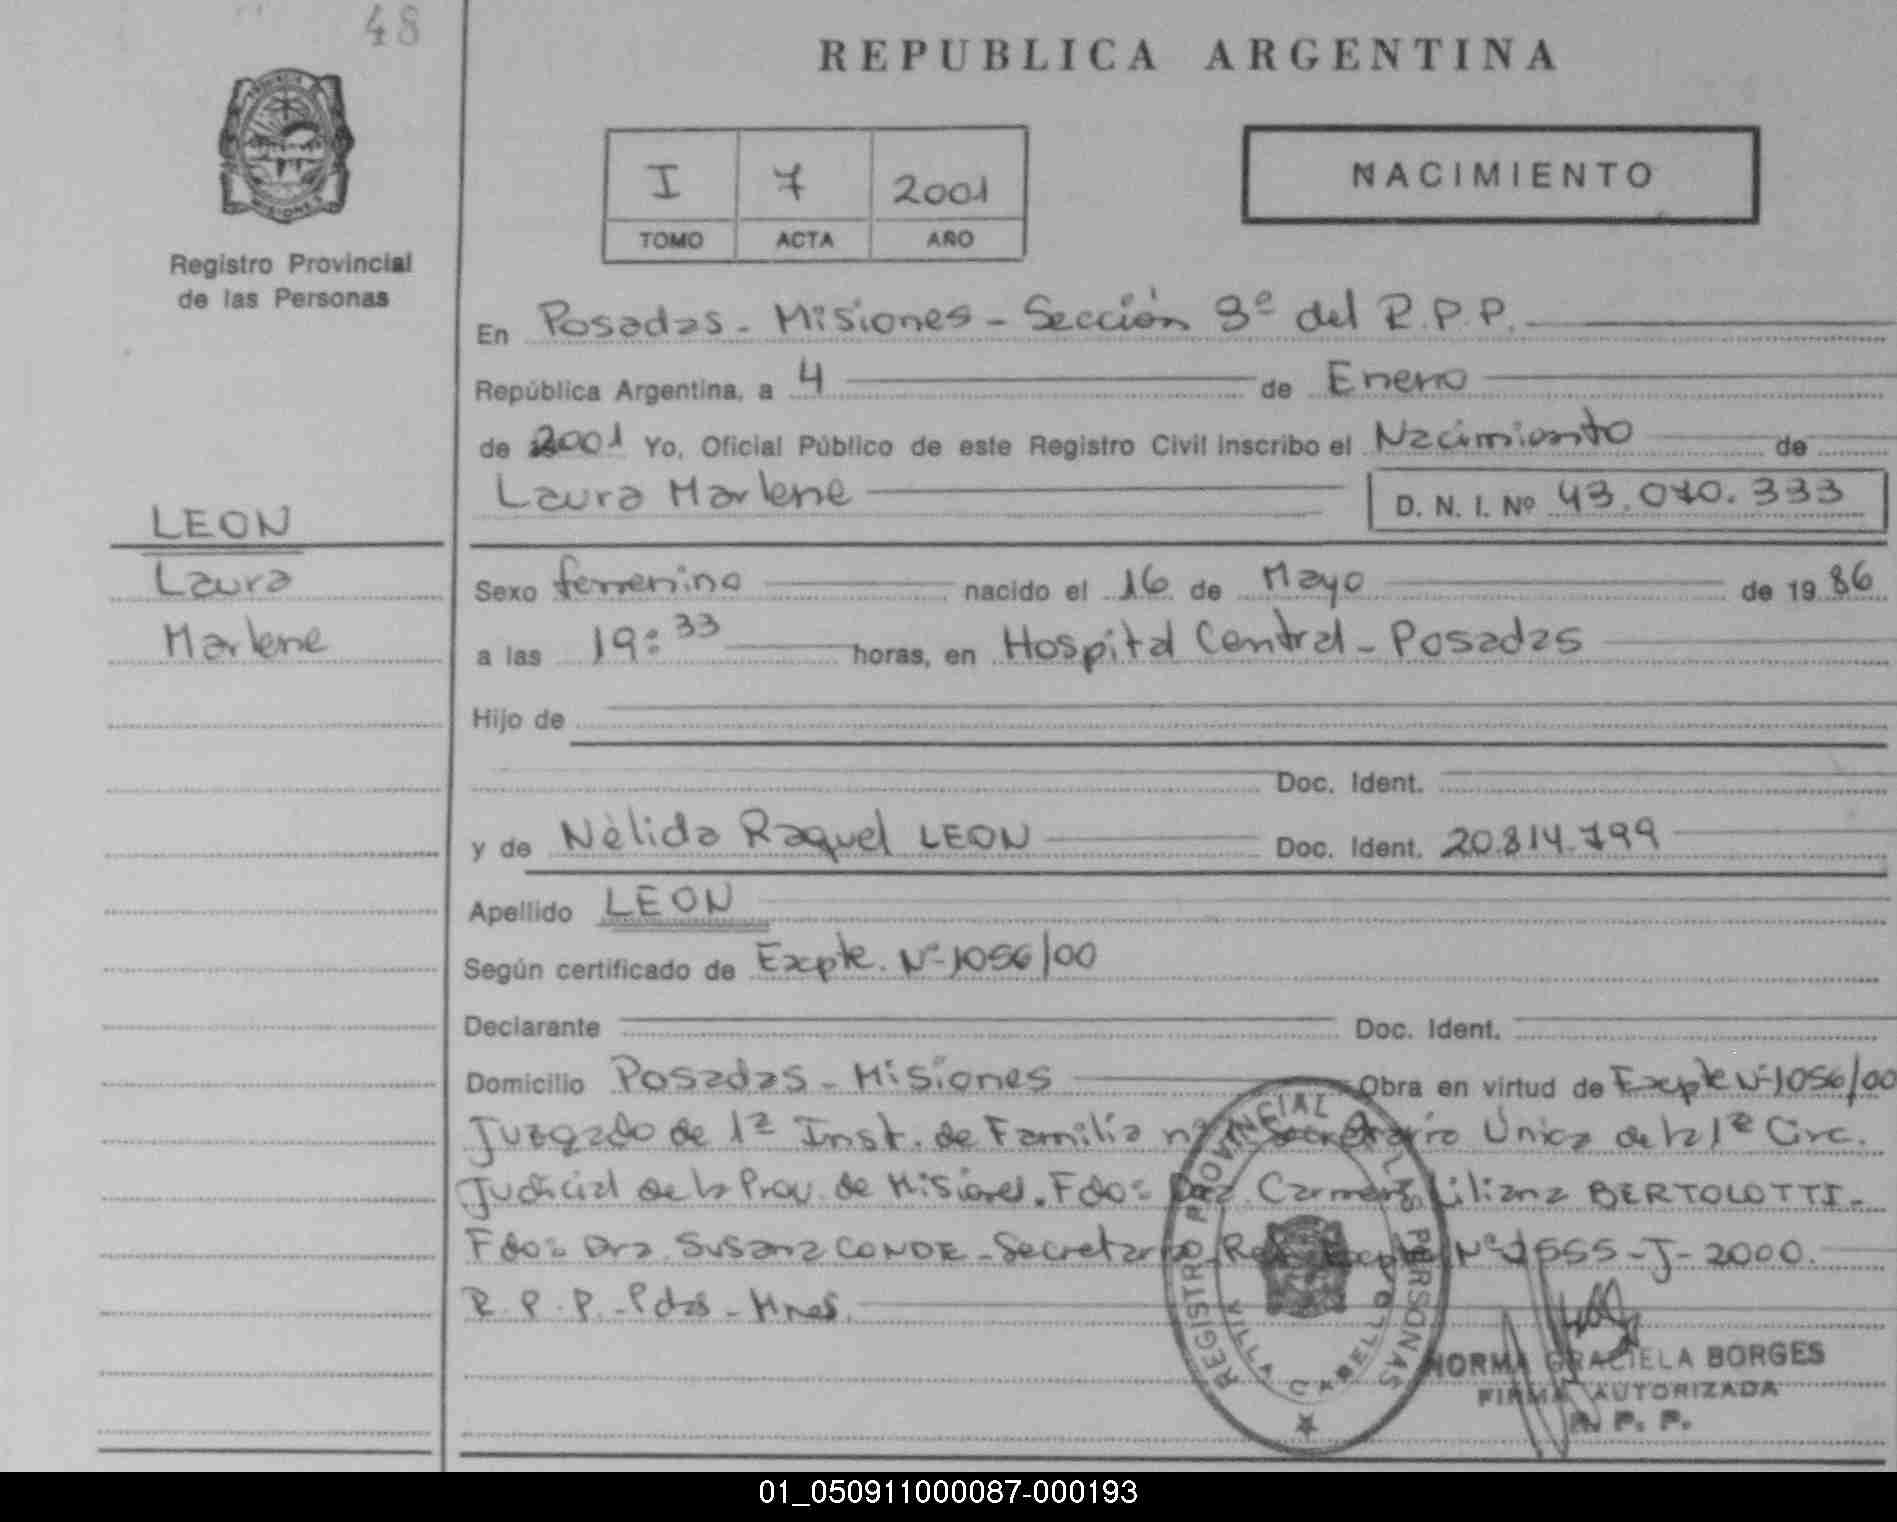 48
REPUBLICA ARGENTINA
I 7 2001
TOMO ACTA AÑO
NACIMIENTO
Registro Provincial
de las Personas
En Posadas - Misiones - Sección 3º del R.P.P.
República Argentina, a 4 de Enero
de 2001 Yo, Oficial Público de este Registro Civil Inscribo el Nacimiento de
Laura Marlene D. N. I. Nº 43.070.333
LEON
Laura
Marlene
Sexo femenino nacido el 16 de Mayo de 19 86
a las 19:33 horas, en Hospital Central - Posadas
Hijo de
Doc. Ident.
y de Nélida Raquel LEON Doc. Ident. 20.814.799
Apellido LEON
Según certificado de Expte. Nº 1056/00
Declarante Doc. Ident.
Domicilio Posadas - Misiones Obra en virtud de Expte Nº 1056/00
Juzgado de 1ª Inst. de Familia nº Secretaría Unica de la 1ª Circ.
Judicial de la Prov. de Misiones. Fdo: Dra. Carmen Liliana BERTOLOTTI -
Fdo: Dra. Susana CONDE - Secretaria. Expte Nº 1555-J-2000.
R.P.P. - Pdas - Mnes.
REGISTRO PROVINCIAL DE LAS PERSONAS
VILLA CABELLO
NORMA GRACIELA BORGES
FIRMA AUTORIZADA
R. P. P.
01_050911000087-000193